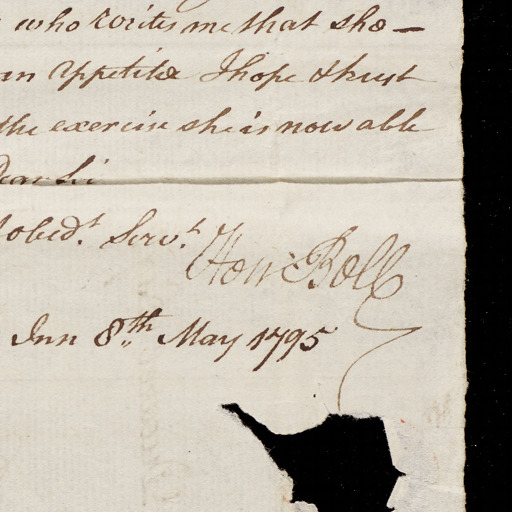 who writes me that she —
an Appetite I hope & trust
the exercise she is now able
Dear Sir
obed.t Serv.t
Hon: Bell
Inn 8th May 1795